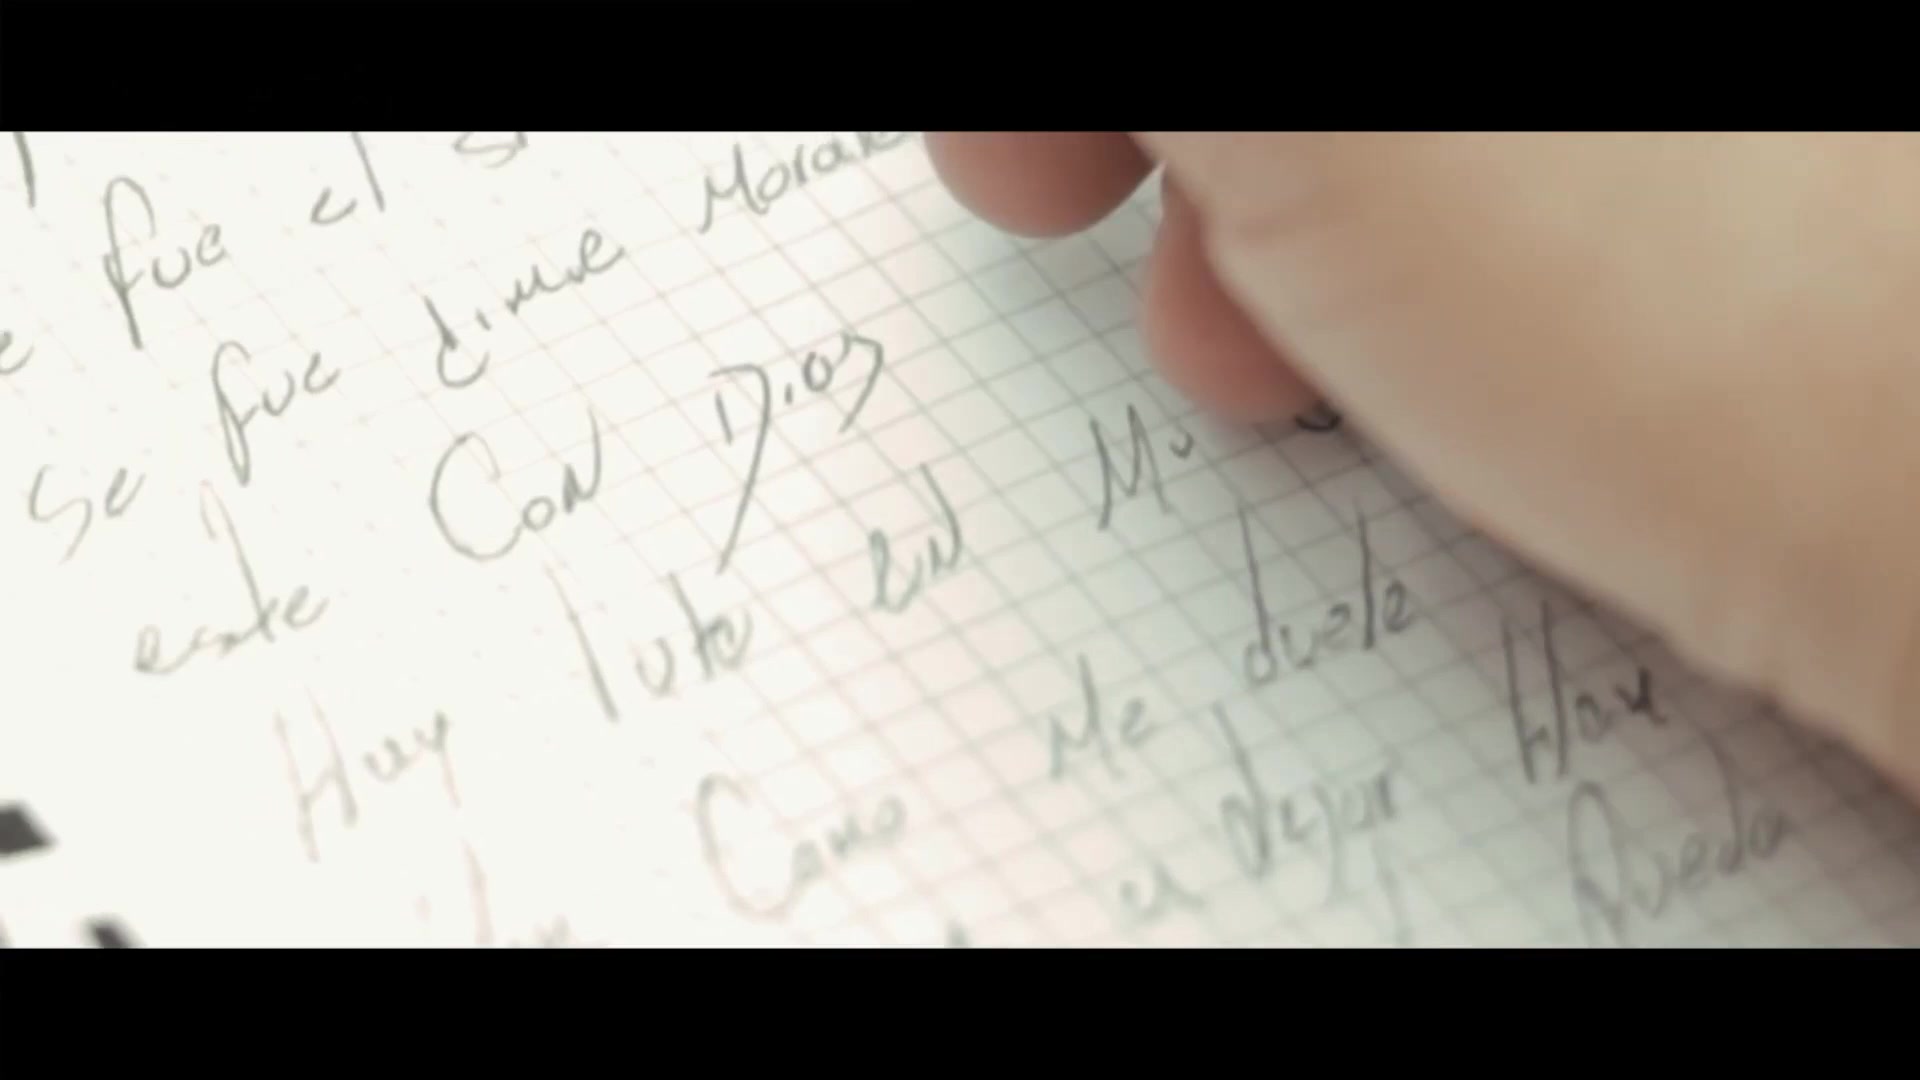 fue el
Se fue dime Morale
este Con Dios
Huy luto en
Como Me duele
el dejar Hay
Queda